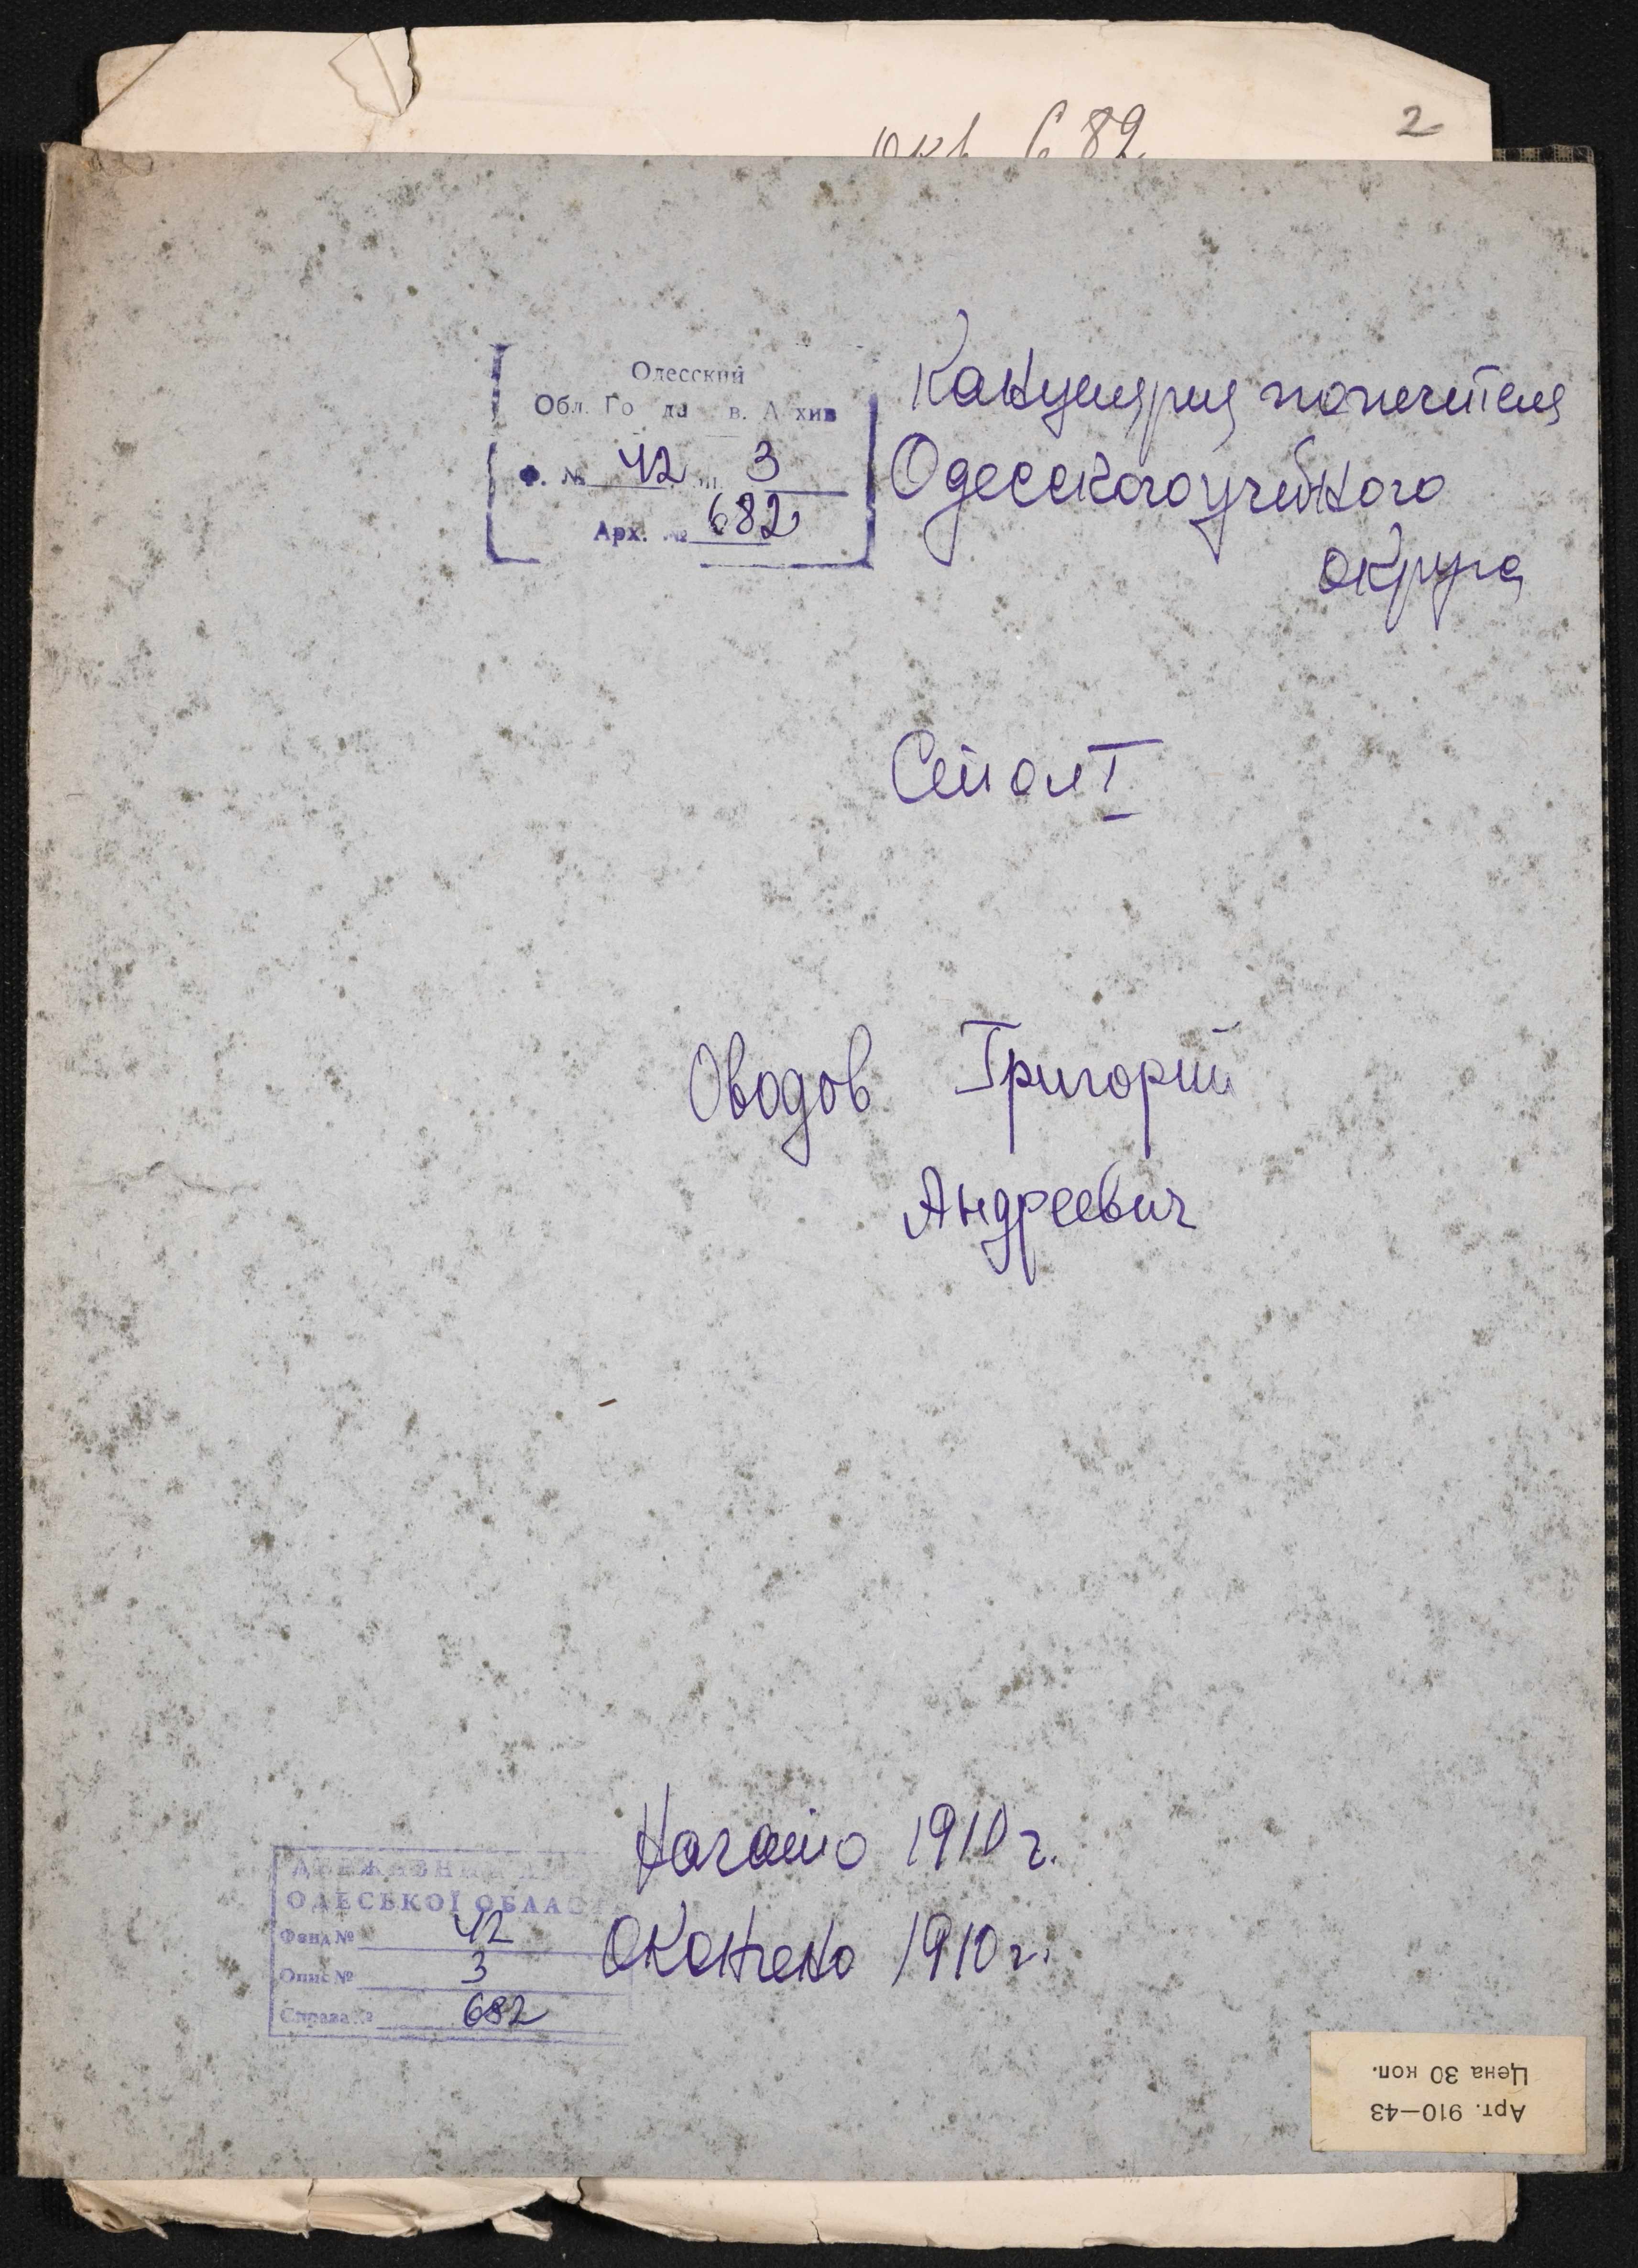 682
2
Одесский
Обл. Го да в. А хив
Ф. № 42 3
Арх. № 682
Канцелярия попечителя
Одесского учебного
округа
Стол I
Оводов Григорий
Андреевич
Начато 1910 г.
Окончено 1910 г.
ОДЕСЬКОЇ ОБЛАС
Фонд № 42
Опис № 3
Справа № 682
Арт. 910—43
Цена 30 коп.